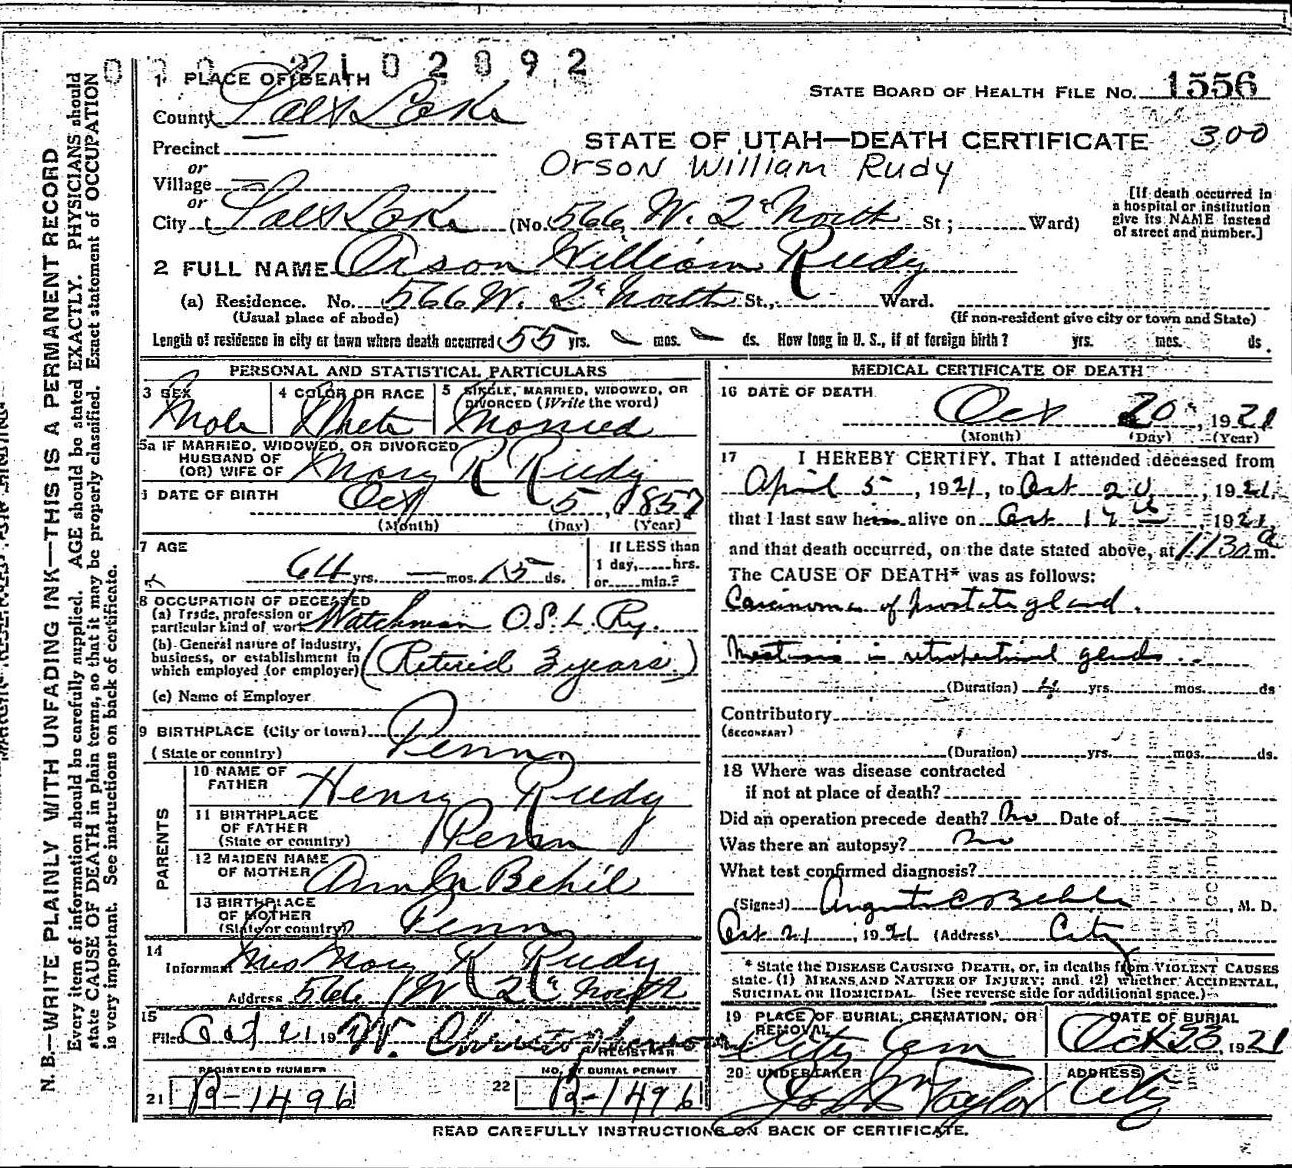 2102892
1 PLACE OF DEATH
STATE BOARD OF HEALTH FILE NO. 1556
County Salt Lake
STATE OF UTAH—DEATH CERTIFICATE 300
Precinct
Orson William Rudy
or
Village
or
City Salt Lake (No. 566 W. 2d North St; Ward)
[If death occurred in
a hospital or institution
give its NAME instead
of street and number.]
2 FULL NAME Orson William Rudy
(a) Residence. No. 566 W. 2d North St., Ward.
(Usual place of abode) (If non-resident give city or town and State)
Length of residence in city or town where death occurred 55 yrs. — mos. — ds. How long in U. S., if of foreign birth? yrs. mos. ds.
PERSONAL AND STATISTICAL PARTICULARS
3 SEX Male
4 COLOR OR RACE White
5 SINGLE, MARRIED, WIDOWED, OR
DIVORCED (Write the word)
Married
5a IF MARRIED, WIDOWED, OR DIVORCED
HUSBAND OF
(OR) WIFE OF Mary R Rudy
6 DATE OF BIRTH Oct 5, 1857
(Month) (Day) (Year)
7 AGE
64 yrs. — mos. 15 ds.
If LESS than
1 day, hrs.
or min.?
8 OCCUPATION OF DECEASED
(a) Trade, profession or
particular kind of work Watchman O.S.L. Ry.
(b) General nature of industry,
business, or establishment in
which employed (or employer) (Retired 3 years.)
(c) Name of Employer
9 BIRTHPLACE (City or town)
(State or country) Penn
PARENTS
10 NAME OF
FATHER Henry Rudy
11 BIRTHPLACE
OF FATHER
(State or country) Penn
12 MAIDEN NAME
OF MOTHER
13 BIRTHPLACE
OF MOTHER
(State or country) Penn
14
Informant Mrs Mary R Rudy
Address 566 W 2d North
15
Filed Oct 21 19 W. Christopherson
REGISTRAR
REGISTERED NUMBER
21 R-1496
NO. OF BURIAL PERMIT
22 R-1496
MEDICAL CERTIFICATE OF DEATH
16 DATE OF DEATH
Oct 20, 1921
(Month) (Day) (Year)
17 I HEREBY CERTIFY, That I attended deceased from
April 5, 1921, to Oct 20, 1921
that I last saw h alive on Oct 19th, 1921,
and that death occurred, on the date stated above, at 1130 a m.
The CAUSE OF DEATH* was as follows:
Carcinoma of prostate gland.
in retroperitoneal glands.
(Duration) yrs. mos. ds
Contributory
(SECONDARY)
(Duration) yrs. mos. ds.
18 Where was disease contracted
if not at place of death?
Did an operation precede death? No Date of —
Was there an autopsy? No
What test confirmed diagnosis?
(Signed) , M. D.
Oct 21, 1921 (Address) City
* State the DISEASE CAUSING DEATH, or, in deaths from VIOLENT CAUSES
state (1) MEANS AND NATURE OF INJURY; and (2) whether ACCIDENTAL,
SUICIDAL OR HOMICIDAL. (See reverse side for additional space.)
19 PLACE OF BURIAL, CREMATION, OR
REMOVAL
City Cem
DATE OF BURIAL
Oct 23, 1921
20 UNDERTAKER
Jos Wm Taylor
ADDRESS
City
READ CAREFULLY INSTRUCTIONS ON BACK OF CERTIFICATE.
N. B.—WRITE PLAINLY WITH UNFADING INK—THIS IS A PERMANENT RECORD
Every item of information should be carefully supplied. AGE should be stated EXACTLY. PHYSICIANS should
state CAUSE OF DEATH in plain terms, so that it may be properly classified. Exact statement of OCCUPATION
is very important. See instructions on back of certificate.